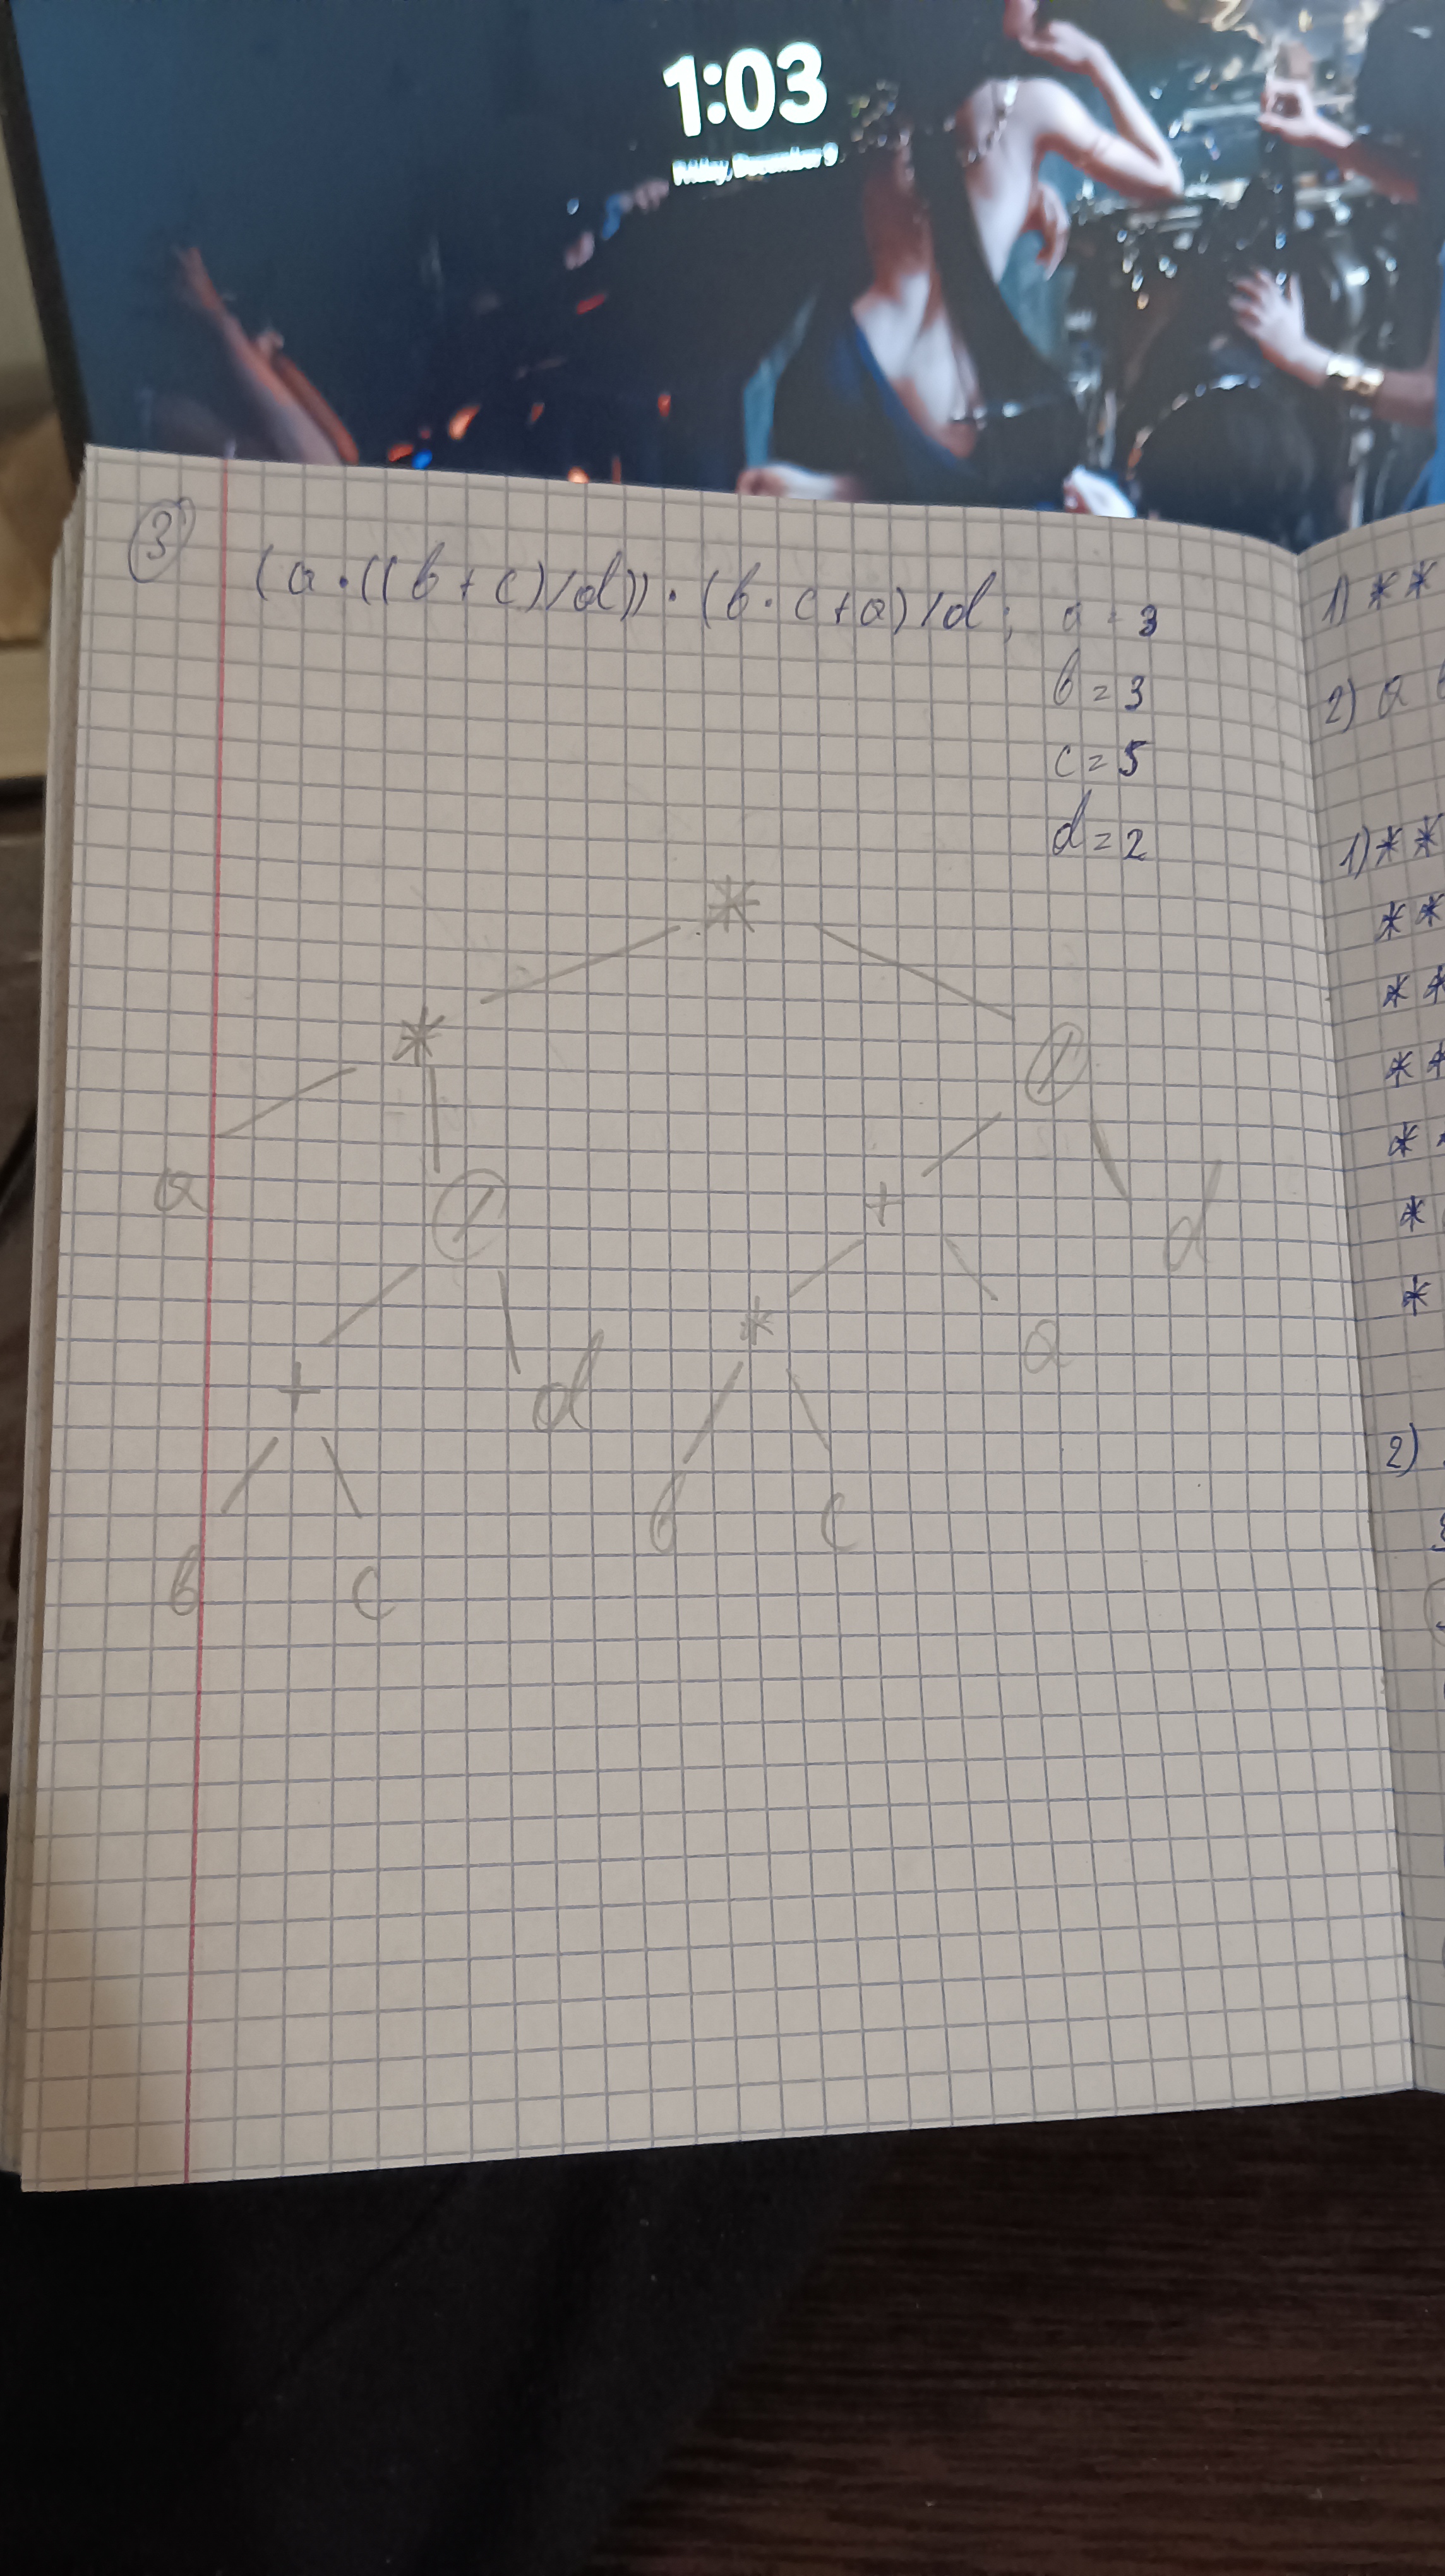 1:03
Friday, December 9
3 (a·((b+c)/d))·(b·c+a)/d; a=3
b=3
c=5
d=2
*
* /
a / + d
+ d * a
b c b c
1) **
2) a
1) **
**
**
**
*
*
*
2)